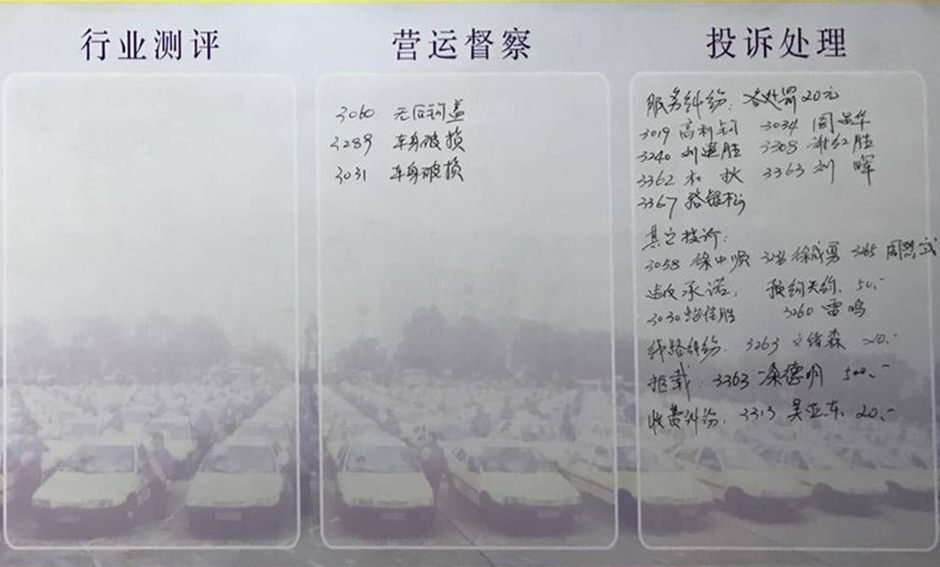 行业测评
营运督察
投诉处理
3060 无后词盖
3289 车身破损
3031 车身破损
服务纠纷：各处罚20元
3019 高利 3034 阎
3240 刘建胜 3308 谢红胜
3362 杜 秋 3363 刘 晖
3367 骆银松
其它投诉：
3058 徐中顺 徐成勇 3285 周
违反承诺， 预约失约，50.-
3030 佳胜 3260 雷鸣
线路纠纷，3263 文绪森 20.-
拒载：3363 涂德明 500.-
收费纠纷，3313 吴亚东，20.-